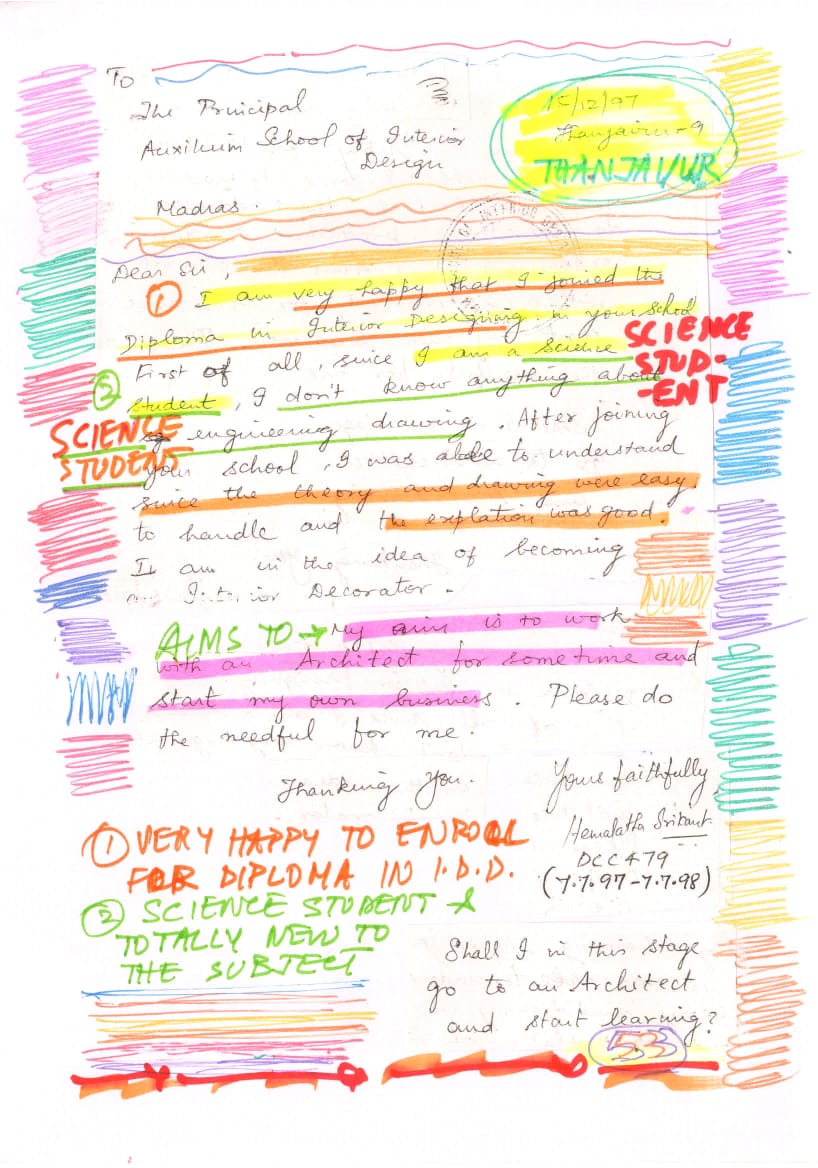 To
The Principal
Auxilium School of Interior
Design
Madras.
15/12/97
Thanjavur-9
THANJAVUR
Dear Sir,
① I am very happy that I joined the
Diploma in Interior Designing in your school
First of all, since I am a science
SCIENCE
STUD-
-ENT
② student, I don't know anything about
SCIENCE
STUDENT
engineering drawing. After joining
your school, I was able to understand
since the theory and drawing were easy.
to handle and the explation was good.
I am in the idea of becoming
an Interior Decorator.
AIMS TO → My aim is to work
with an Architect for sometime and
start my own business. Please do
the needful for me.
Thanking You.
Yours faithfully,
Hemalatha Srikant
DCC479
(7.7.97-7.7.98)
① VERY HAPPY TO ENROLL
FOR DIPLOMA IN I.D.D.
② SCIENCE STUDENT &
TOTALLY NEW TO
THE SUBJECT
Shall I in this stage
go to an Architect
and start learning?
53